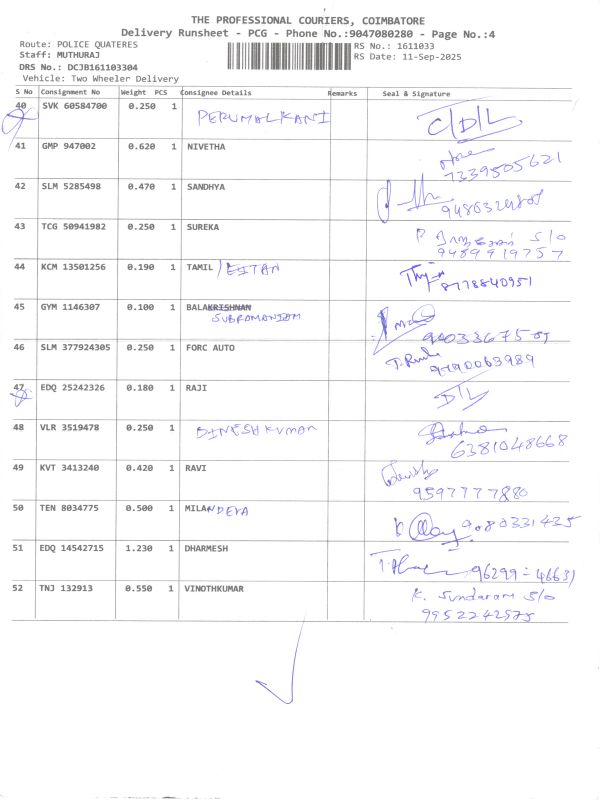 THE PROFESSIONAL COURIERS, COIMBATORE
Delivery Runsheet - PCG - Phone No.:9047080280 - Page No.:4
Route: POLICE QUATERES RS No.: 1611033
Staff: MUTHURAJ RS Date: 11-Sep-2025
DRS No.: DCJB161103304
Vehicle: Two Wheeler Delivery
S No Consignment No Weight PCS Consignee Details Remarks Seal & Signature
40 SVK 60584700 0.250 1 PERUMALKANI C/D/L
41 GMP 947002 0.620 1 NIVETHA
7339505621
42 SLM 5285498 0.470 1 SANDHYA
43 TCG 50941982 0.250 1 SUREKA S/O
9489919757
44 KCM 13501256 0.190 1 TAMIL
8778840951
45 GYM 1146307 0.100 1 BALAKRISHNAN
SUBRAMANIAM
46 SLM 377924305 0.250 1 FORC AUTO
9790063989
47 EDQ 25242326 0.180 1 RAJI D/L
48 VLR 3519478 0.250 1 DINESHKUMAR
6381048668
49 KVT 3413240 0.420 1 RAVI
9597777880
50 TEN 8034775 0.500 1 MILANDEVA 9080331435
51 EDQ 14542715 1.230 1 DHARMESH
96299-46631
52 TNJ 132913 0.550 1 VINOTHKUMAR K. Sundaram S/O
9952242575